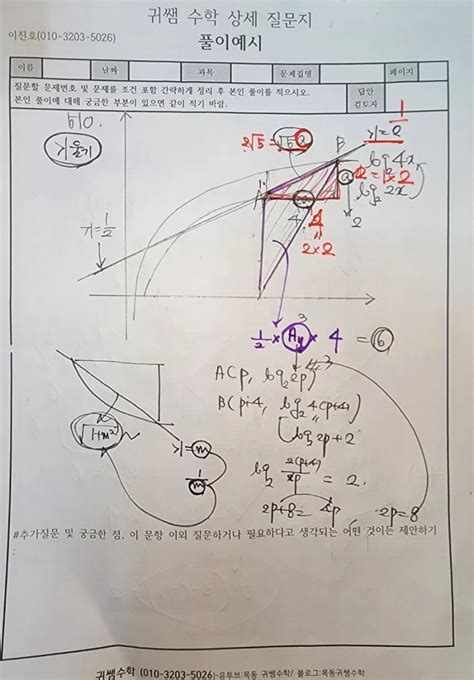 귀쌤 수학 상세 질문지
이진호(010-3203-5026)
풀이예시
이름 날짜 과목 문제집명 페이지
질문할 문제번호 및 문제를 조건 포함 간략하게 정리 후 본인 풀이를 적으시오.
본인 풀이에 대해 궁금한 부분이 있으면 같이 적기 바람.
답안
검토자
610.
기울기
2√5 = √5 2
B
log₂4x
2 = 1×2
log₂2x
A
2
4
2×2
기=1/2
1/2 × Ay × 4 = 6
3
A(p, log₂2p)
B(p+4, log₂4(p+4))
log₂2p+2
√1+m²
기=m
1/m
= 2.
2p+8= 4p
2p=8
#추가질문 및 궁금한 점, 이 문항 이외 질문하거나 필요하다고 생각되는 어떤 것이든 제안하기
귀쌤수학 (010-3203-5026)-유투브:목동 귀쌤수학/ 블로그:목동귀쌤수학